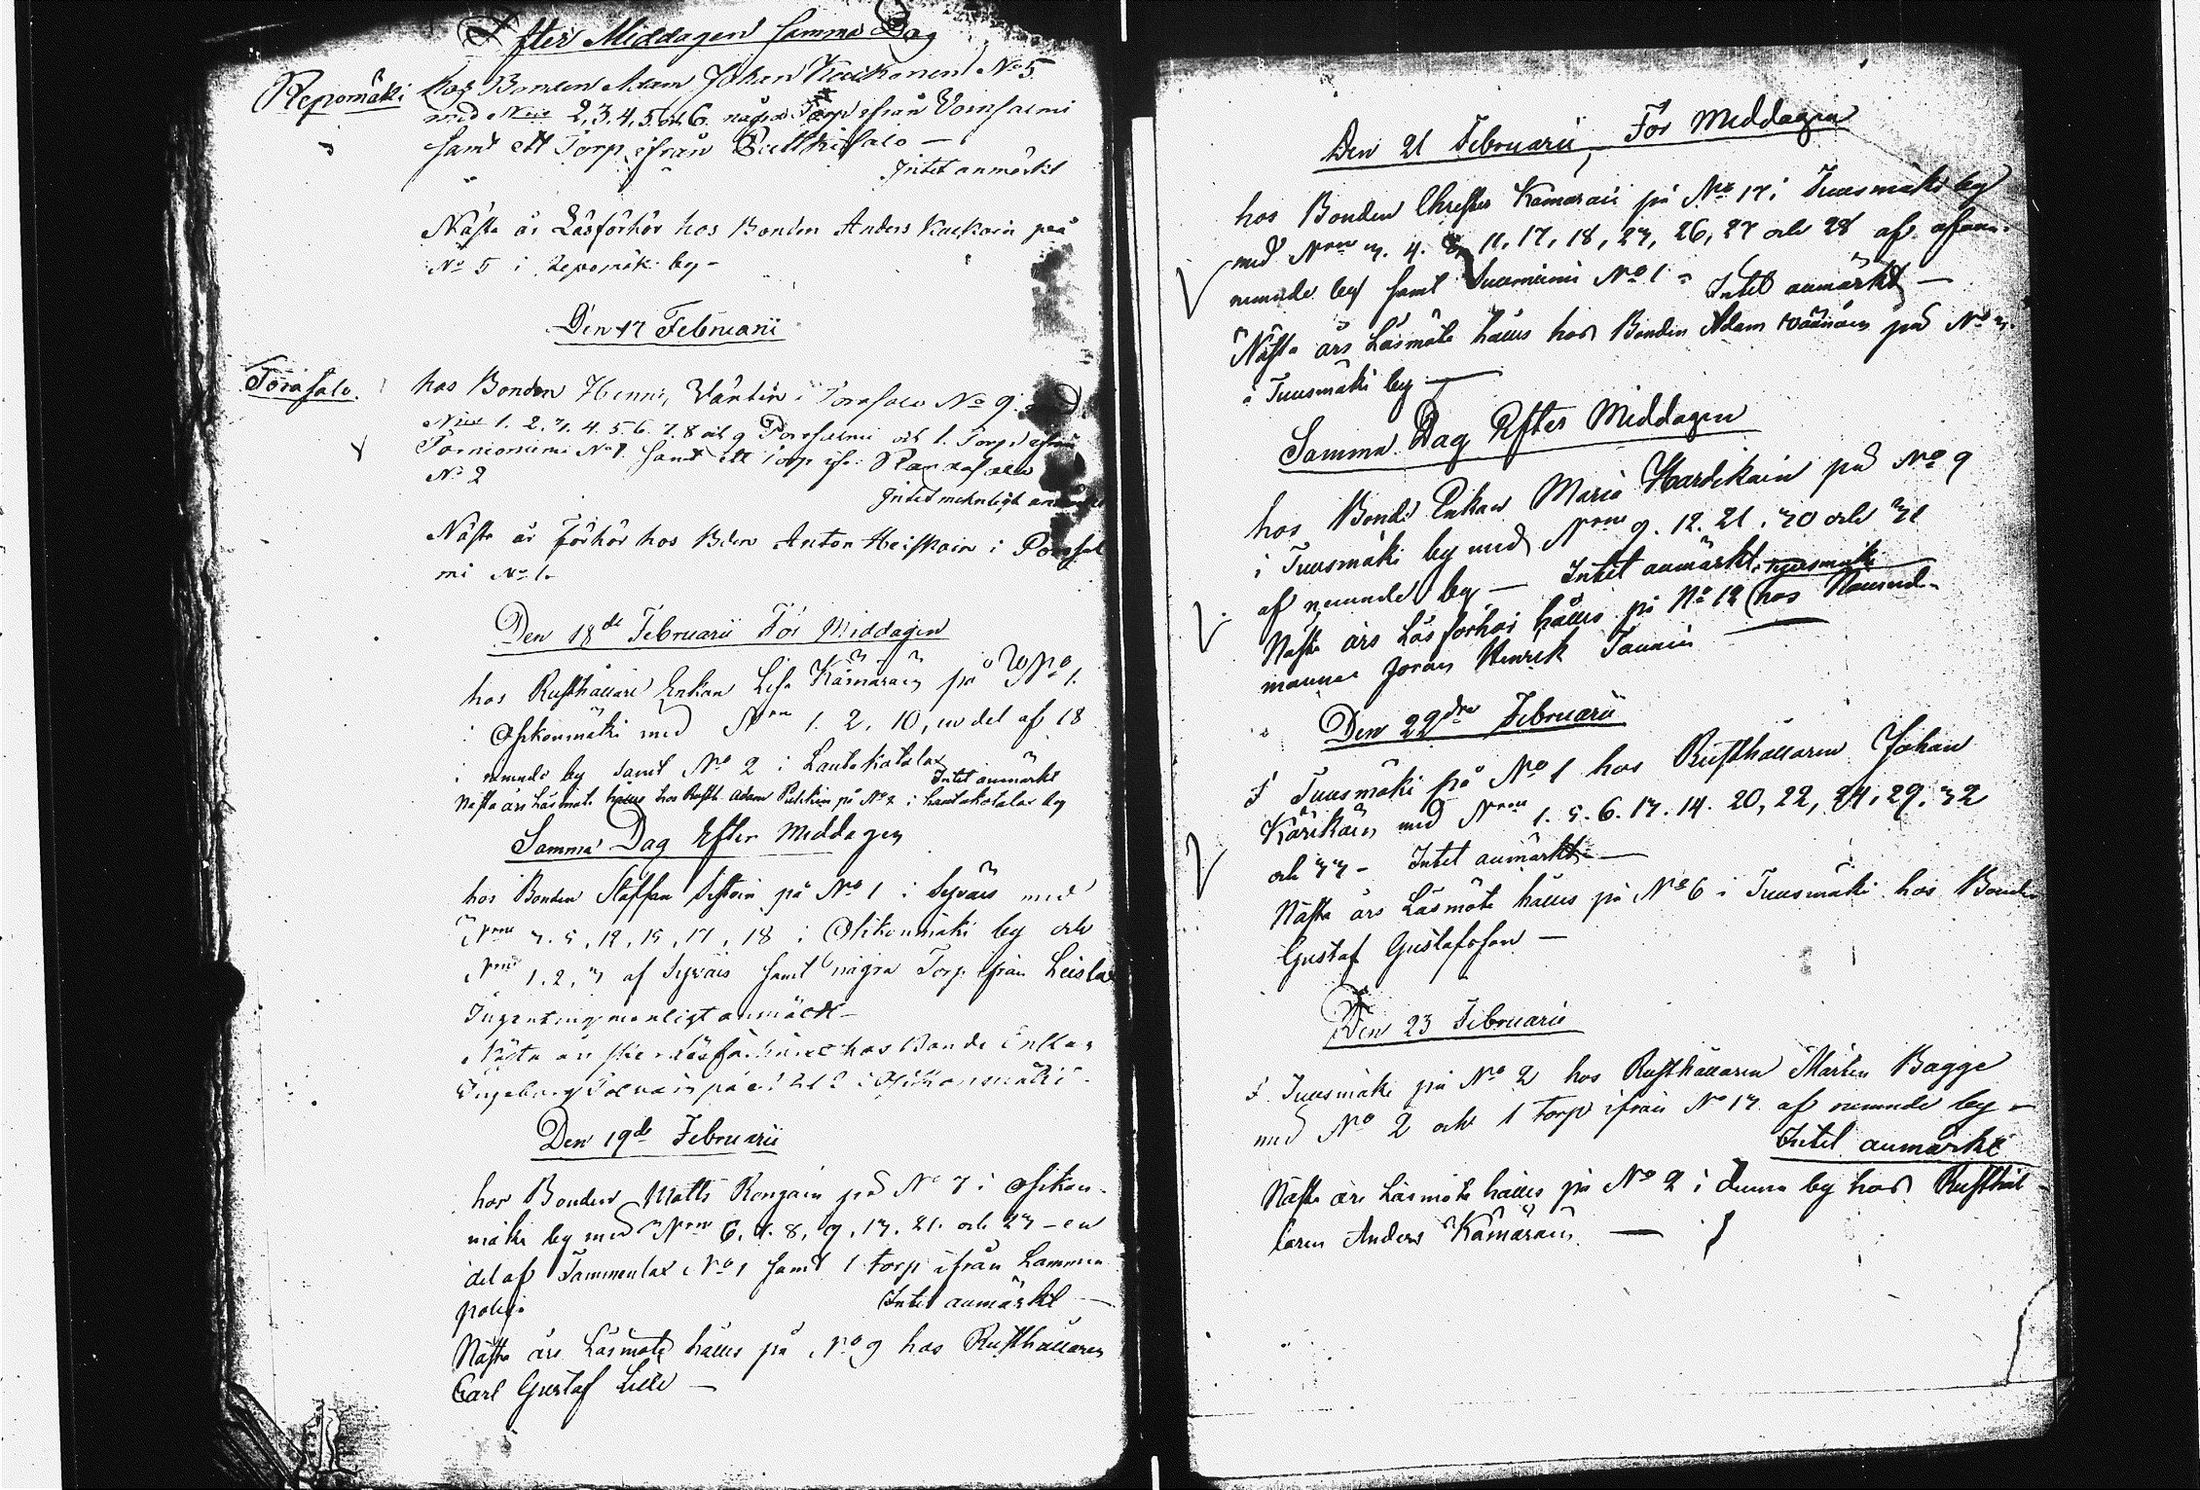 Efter Middagen samma Dag
Repomäki
hos Bonden Adam Johan Kaikonen No 5
med No 2, 3. 4. 5 och 6. några Torp ifrån Voinsalmi
samt ett Torp ifrån Putkisalo —
Intet anmärkt
Nästa år Läsförhör hos Bonden Anders Kaikoin på
No 5 i Repomäki by —
Den 17 Februarii
Torasalo.
hos Bonden Henric Vänttin i Torasalo No 9.
1. 2. 3. 4. 5 6. 7. 8 och 9 Porosalmi och 1. Torp ifrån
Tornioniemi No 1. samt ett Torp ifr.
No 2
Intet märkeligt anmärkt
Näste år Förhör hos Bden Anton Heiskain i Porosal
mi No 1.
Den 18de Februarii För Middagen
hos Rusthållare Enkan Lisa Kämäräin på No 1.
i Osikonmäki med Nrne 1. 2. 10, en del af 18
i nemnde by samt No 2 i Lautakotalax
Intet anmärkt
Nästa års Läsmöte hålles hos Rusth. Adam Putkin på No 2 i Lautakotalax by
Samma Dag Efter Middagen
hos Bonden Staffan på No 1 i Syväis med
Nrne 3. 5, 12, 15, 17, 18 i Osikonmäki by och
Nrne 1. 2, 3 af Syväis samt några Torp ifrån Leislax
Ingenting märkligt anmärkt —
Nästa års sker Läsförhöret hos Bonde Enkan
Ingeborg på No i Osikonmäki
Den 19de Februarii
hos Bonden Matts Rongain på No 7 i Osikon-
mäki by med Nrne 6, 7. 8, 9, 13. 21. och 23 — en
del af Tammenlax No 1 samt 1 torp ifrån Lammin
pohja
Intet anmärkt —
Nästa års Läsmöte hålles på No 9 hos Rusthållaren
Carl Gustaf Lille —
Den 21 Februarii, För Middagen
hos Bonden Christer Kämäräin på No 17 i Tuusmäki by
med Nrne 3. 4. 8, 11, 17, 18, 23, 26, 27 och 28 af ofvan-
nemnde by samt Suurniemi No 1 = Intet anmärkt —
Nästa års Läsmöte hålles hos Bonden Adam Wäänäin på No 3.
i Tuusmäki by —
Samma Dag Efter Middagen
hos Bonde Enkan Maria Hardikain på No 9
i Tuusmäki by med Nrne 9. 12. 21. 30 och 31
af nemnde by — Intet anmärkt. Tuusmäki
Nästa års Läsförhör hålles på No 12 (hos Nämnd-
mannen Joran Henrik Taurin —
Den 22dra Februarii
I Tuusmäki på No 1 hos Rusthållaren Johan
Kärikäin med Nrne 1. 5. 6. 13. 14. 20, 22, 24, 29, 32
och 33 — Intet anmärkt —
Nästa års Läsmöte hålles på No 6 i Tuusmäki hos Bonden
Gustaf Gustafsson —
Den 23 Februarii
I Tuusmäki på No 2 hos Rusthållaren Mårten Bagge
med No 2 och 1 torp ifrån No 13 af nemnde by —
Intet anmärkt
Nästa års Läsmöte hålles på No 2 i denna by hos Rusthål-
laren Anders Kämäräin. —